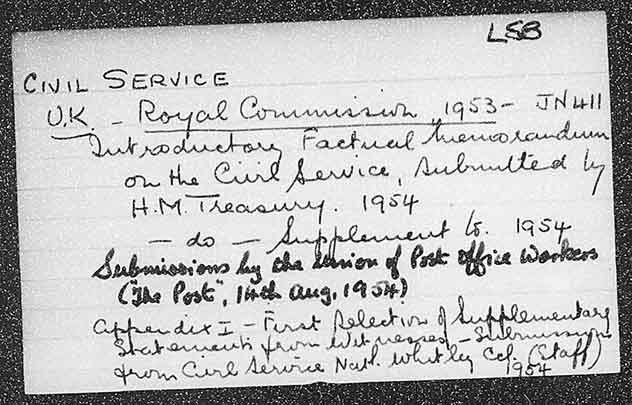 L5B
CIVIL SERVICE
U.K. - Royal Commission, 1953- JN411
Introductory Factual Memorandum
on the Civil Service, submitted by
H.M. Treasury. 1954
- do - Supplement to. 1954
Submissions by the Union of Post Office Workers
("The Post", 14th Aug, 1954)
Appendix I - First Selection of Supplementary
Statements from Witnesses - Submission
from Civil Service Nat. Whitley Ccl. (Staff)
1954